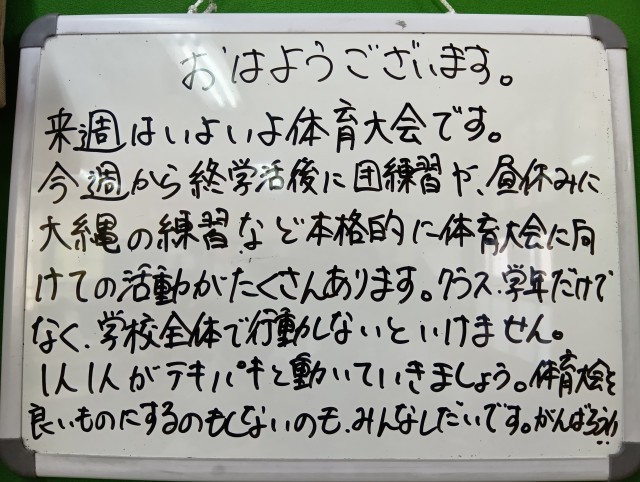 おはようございます。
来週はいよいよ体育大会です。
今週から終学活後に団練習や、昼休みに
大縄の練習など本格的に体育大会に向
けての活動がたくさんあります。クラス、学年だけで
なく、学校全体で行動しないといけません。
1人1人がテキパキと動いていきましょう。体育大会を
良いものにするのもしないのも、みんなしだいです。がんばろう!!